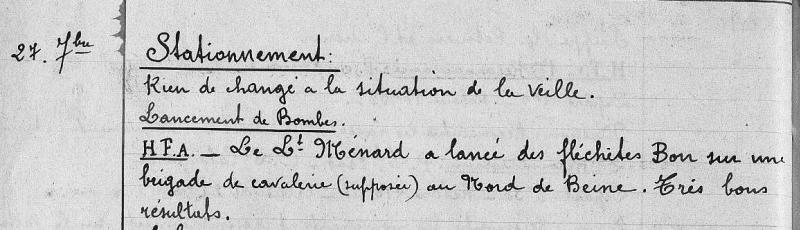 27. 7bre
Stationnement:
Rien de changé a la situation de la veille.
Lancement de Bombes.
H F.A. _ Le Lt Ménard a lancé des fléchètes Bon sur une
brigade de cavalerie (supposée) au Nord de Beine. Très bons
résultats.